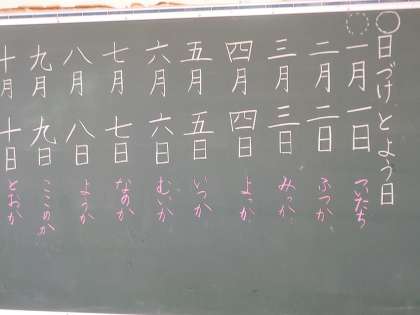 日づけとよう日
一月一日ついたち
二月二日ふつか
三月三日みっか
四月四日よっか
五月五日いつか
六月六日むいか
七月七日なのか
八月八日ようか
九月九日ここのか
十月十日とおか